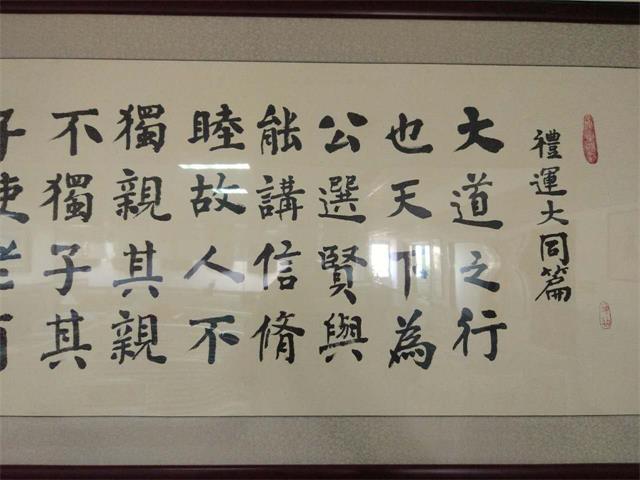 禮運大同篇
大道之行
也天下為
公選賢與
能講信脩
睦故人不
獨親其親
不獨子其